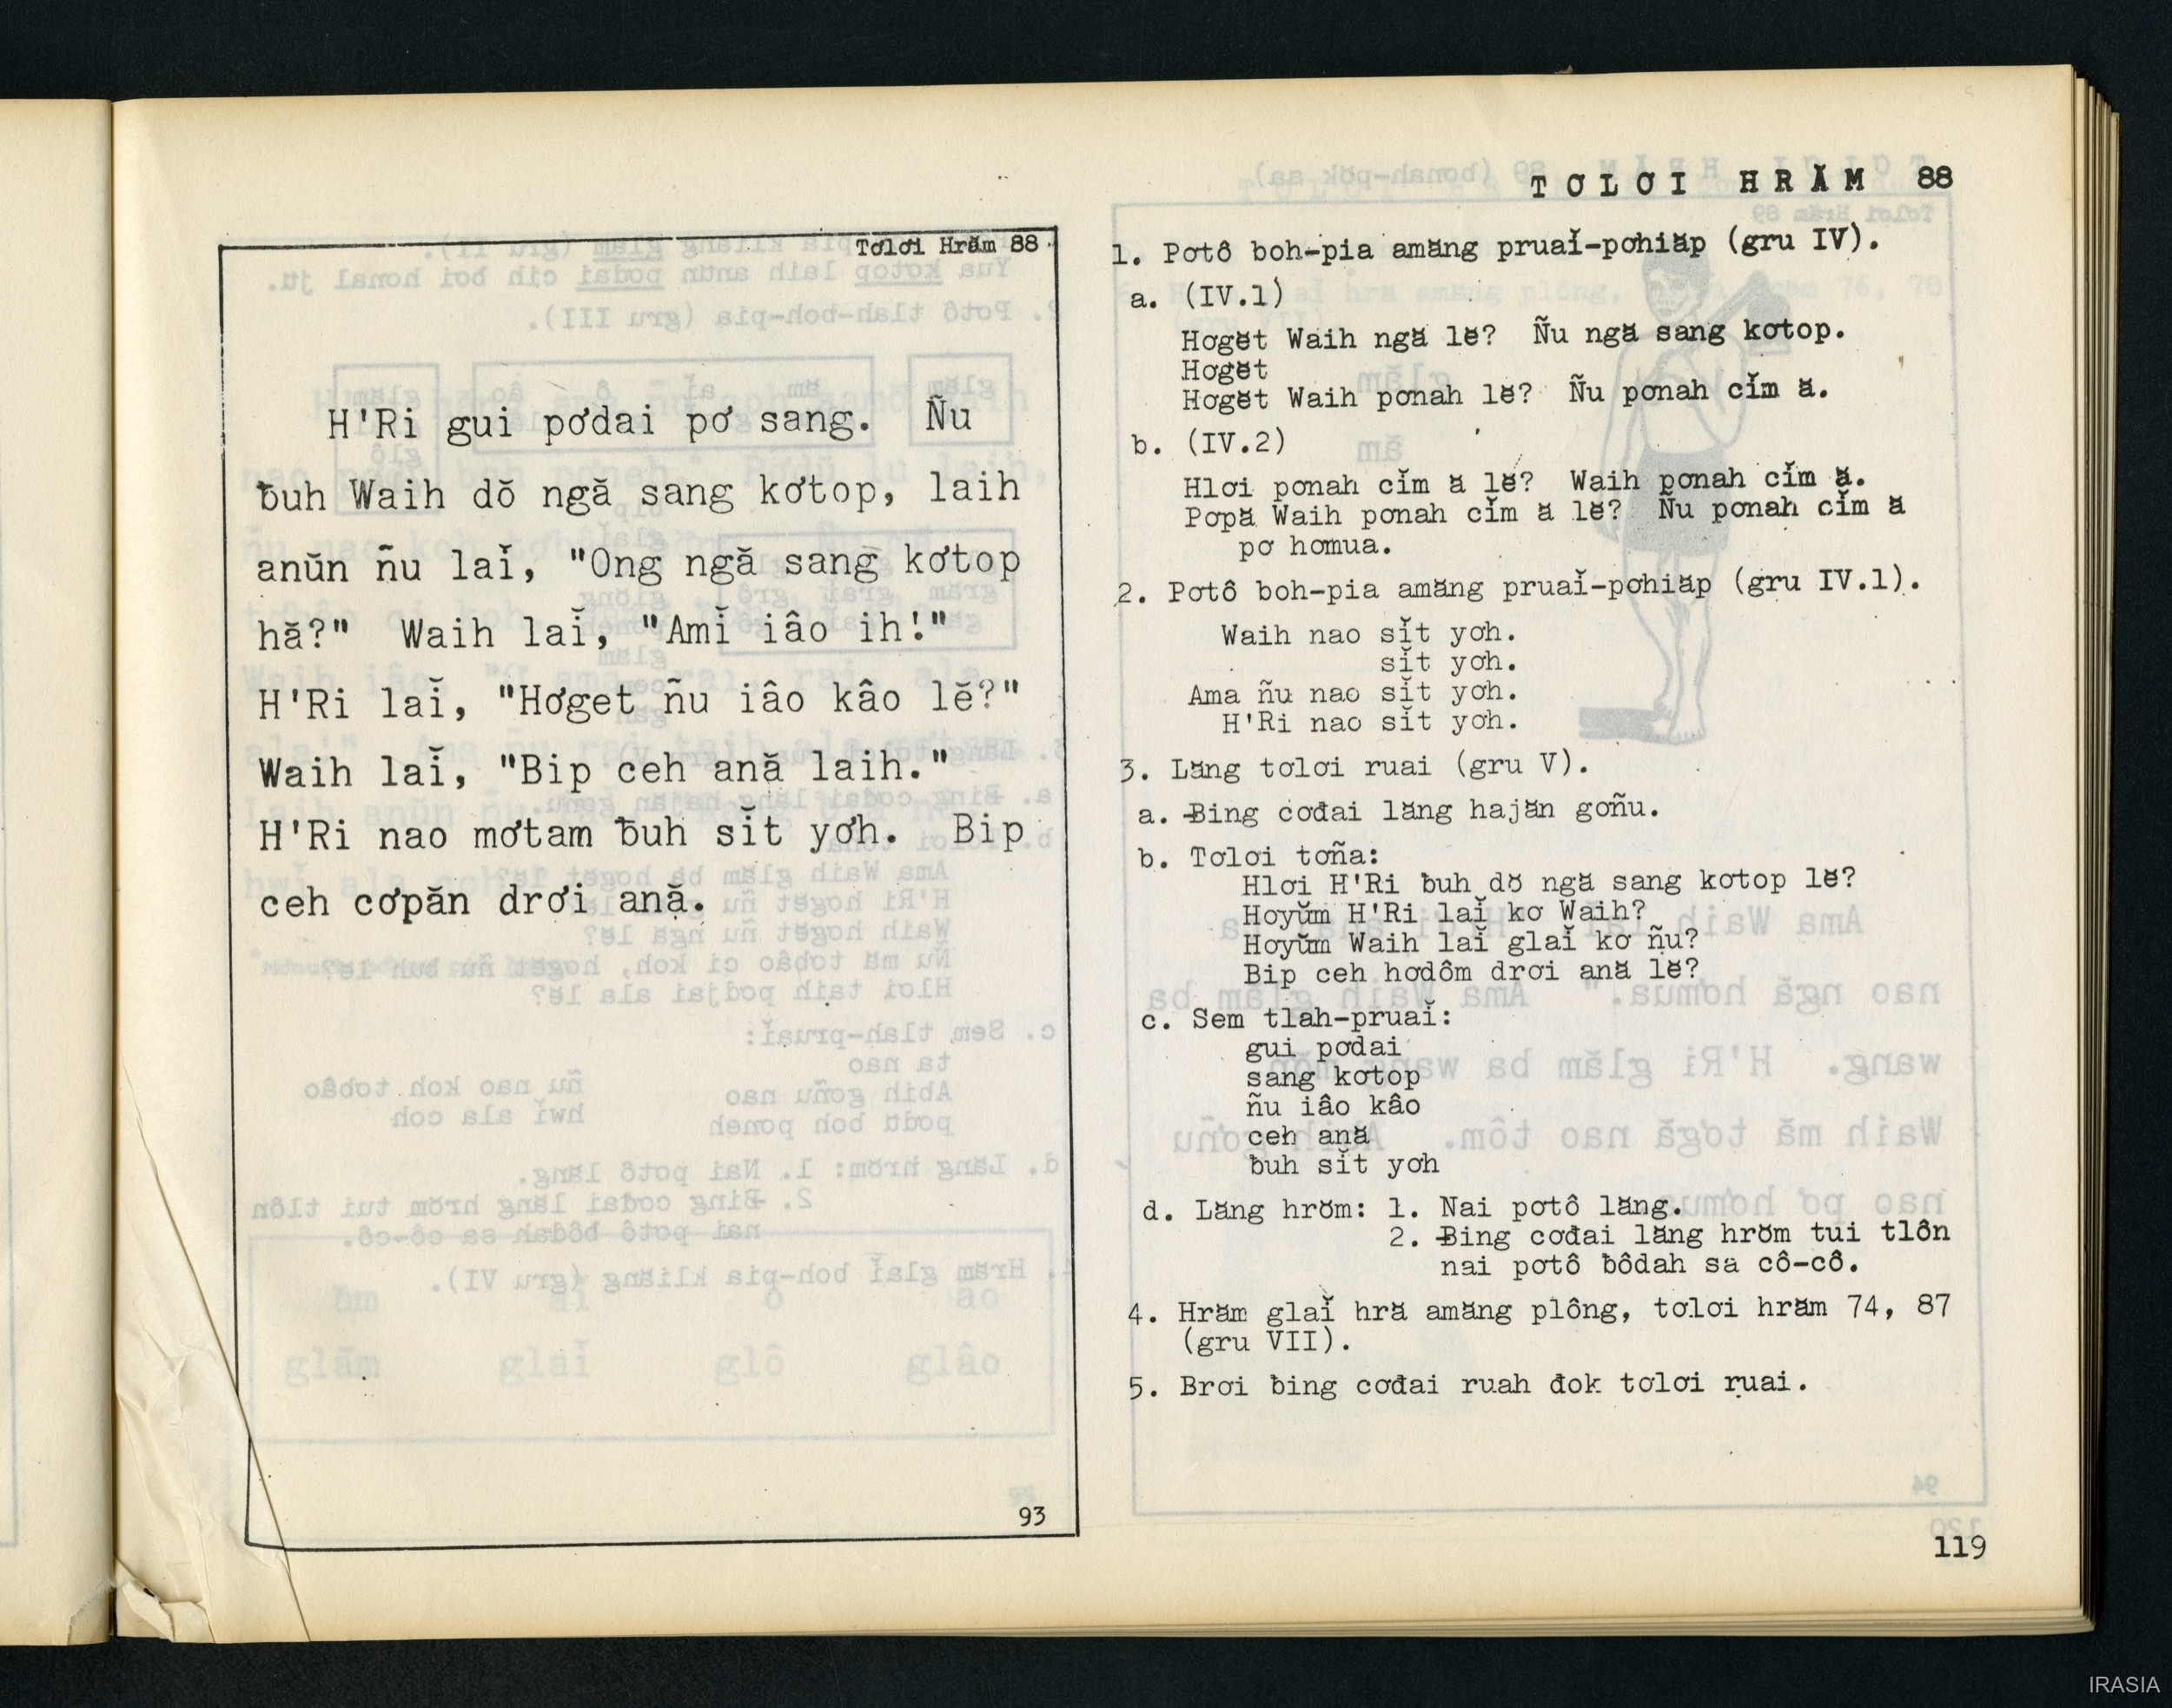 Tơlơi Hrăm 88
H'Ri gui pơdai pơ sang. Ñu
ƀuh Waih dŏ ngă sang kơtop, laih
anŭn ñu laĭ, "Ong ngă sang kơtop
hă?" Waih laĭ, "Amĭ iâo ih!"
H'Ri laĭ, "Hơget ñu iâo kâo lĕ?"
Waih laĭ, "Bip ceh ană laih."
H'Ri nao mơtam ƀuh sĭt yơh. Bip
ceh cơpăn drơi ană.
93
TƠLƠI HRĂM 88
1. Pơtô boh-pia amăng pruaĭ-pơhiăp (gru IV).
a. (IV.1)
Hơgĕt Waih ngă lĕ? Ñu ngă sang kơtop.
Hơgĕt
Hơgĕt Waih pơnah lĕ? Ñu pơnah cĭm ă.
b. (IV.2)
Hlơi pơnah cĭm ă lĕ? Waih pơnah cĭm ă.
Pơpă Waih pơnah cĭm ă lĕ? Ñu pơnah cĭm ă
pơ hơmua.
2. Pơtô boh-pia amăng pruaĭ-pơhiăp (gru IV.1).
Waih nao sĭt yơh.
sĭt yơh.
Ama ñu nao sĭt yơh.
H'Ri nao sĭt yơh.
3. Lăng tơlơi ruai (gru V).
a. Ƀing cơđai lăng hajăn gơñu.
b. Tơlơi tơña:
Hlơi H'Ri ƀuh dŏ ngă sang kơtop lĕ?
Hơyŭm H'Ri laĭ kơ Waih?
Hơyŭm Waih laĭ glaĭ kơ ñu?
Bip ceh hơdôm drơi ană lĕ?
c. Sem tlah-pruaĭ:
gui pơdai
sang kơtop
ñu iâo kâo
ceh ană
ƀuh sĭt yơh
d. Lăng hrŏm: 1. Nai pơtô lăng.
2. Ƀing cơđai lăng hrŏm tui tlôn
nai pơtô ƀôdah sa cô-cô.
4. Hrăm glaĭ hră amăng plông, tơlơi hrăm 74, 87
(gru VII).
5. Brơi ƀing cơđai ruah đok tơlơi ruai.
119
IRASIA